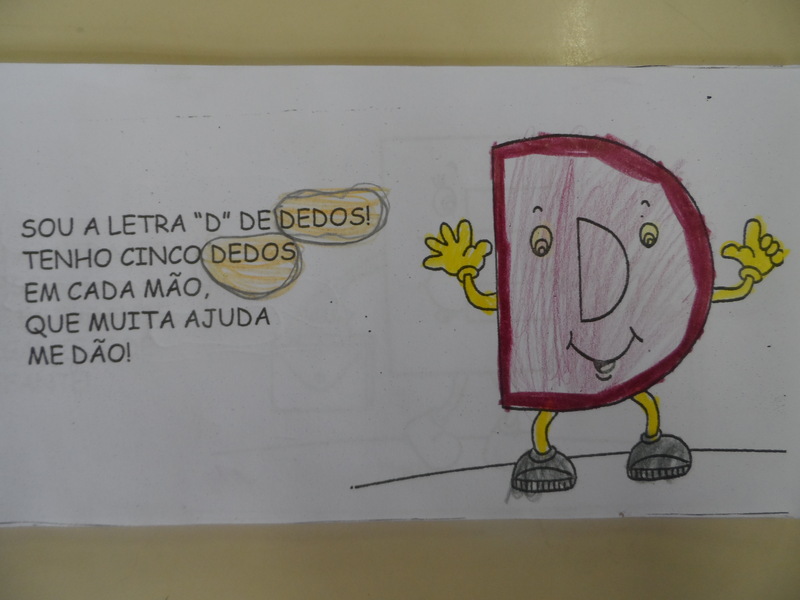 SOU A LETRA "D" DE DEDOS!
TENHO CINCO DEDOS
EM CADA MÃO,
QUE MUITA AJUDA
ME DÃO!
D